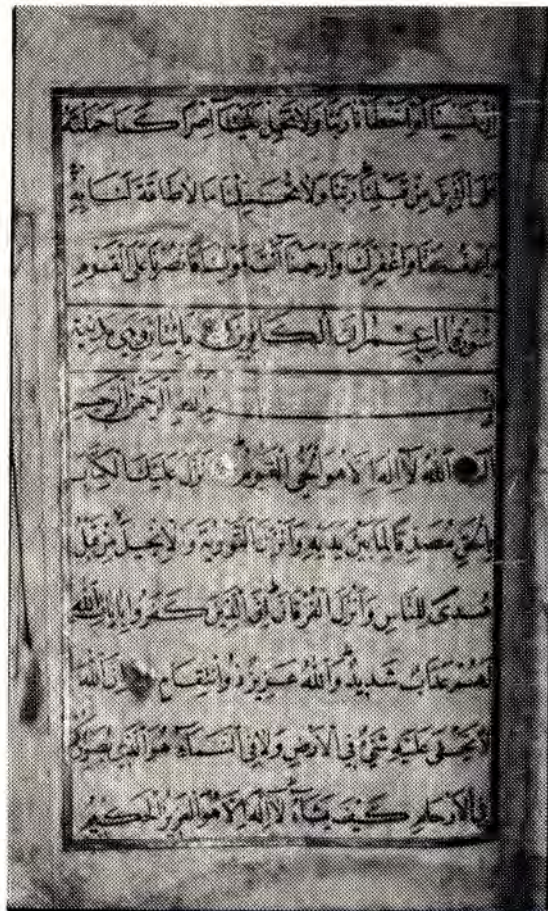 إن نسينا أو أخطأنا ربنا ولا تحمل علينا إصرا كما حملته
على الذين من قبلنا ربنا ولا تحملنا ما لا طاقة لنا به
واعف عنا واغفر لنا وارحمنا أنت مولينا فانصرنا على القوم
سورة آل عمران الكافرين مائتا وهي مدنية
بسم الله الرحمن الرحيم
الم الله لا إله إلا هو الحي القيوم نزل عليك الكتاب
بالحق مصدقا لما بين يديه وأنزل التورية والإنجيل من قبل
هدى للناس وأنزل الفرقان إن الذين كفروا بآيات الله
لهم عذاب شديد والله عزيز ذو انتقام إن الله
لا يخفى عليه شيء في الأرض ولا في السماء هو الذي يصوركم
في الأرحام كيف يشاء لا إله إلا هو العزيز الحكيم